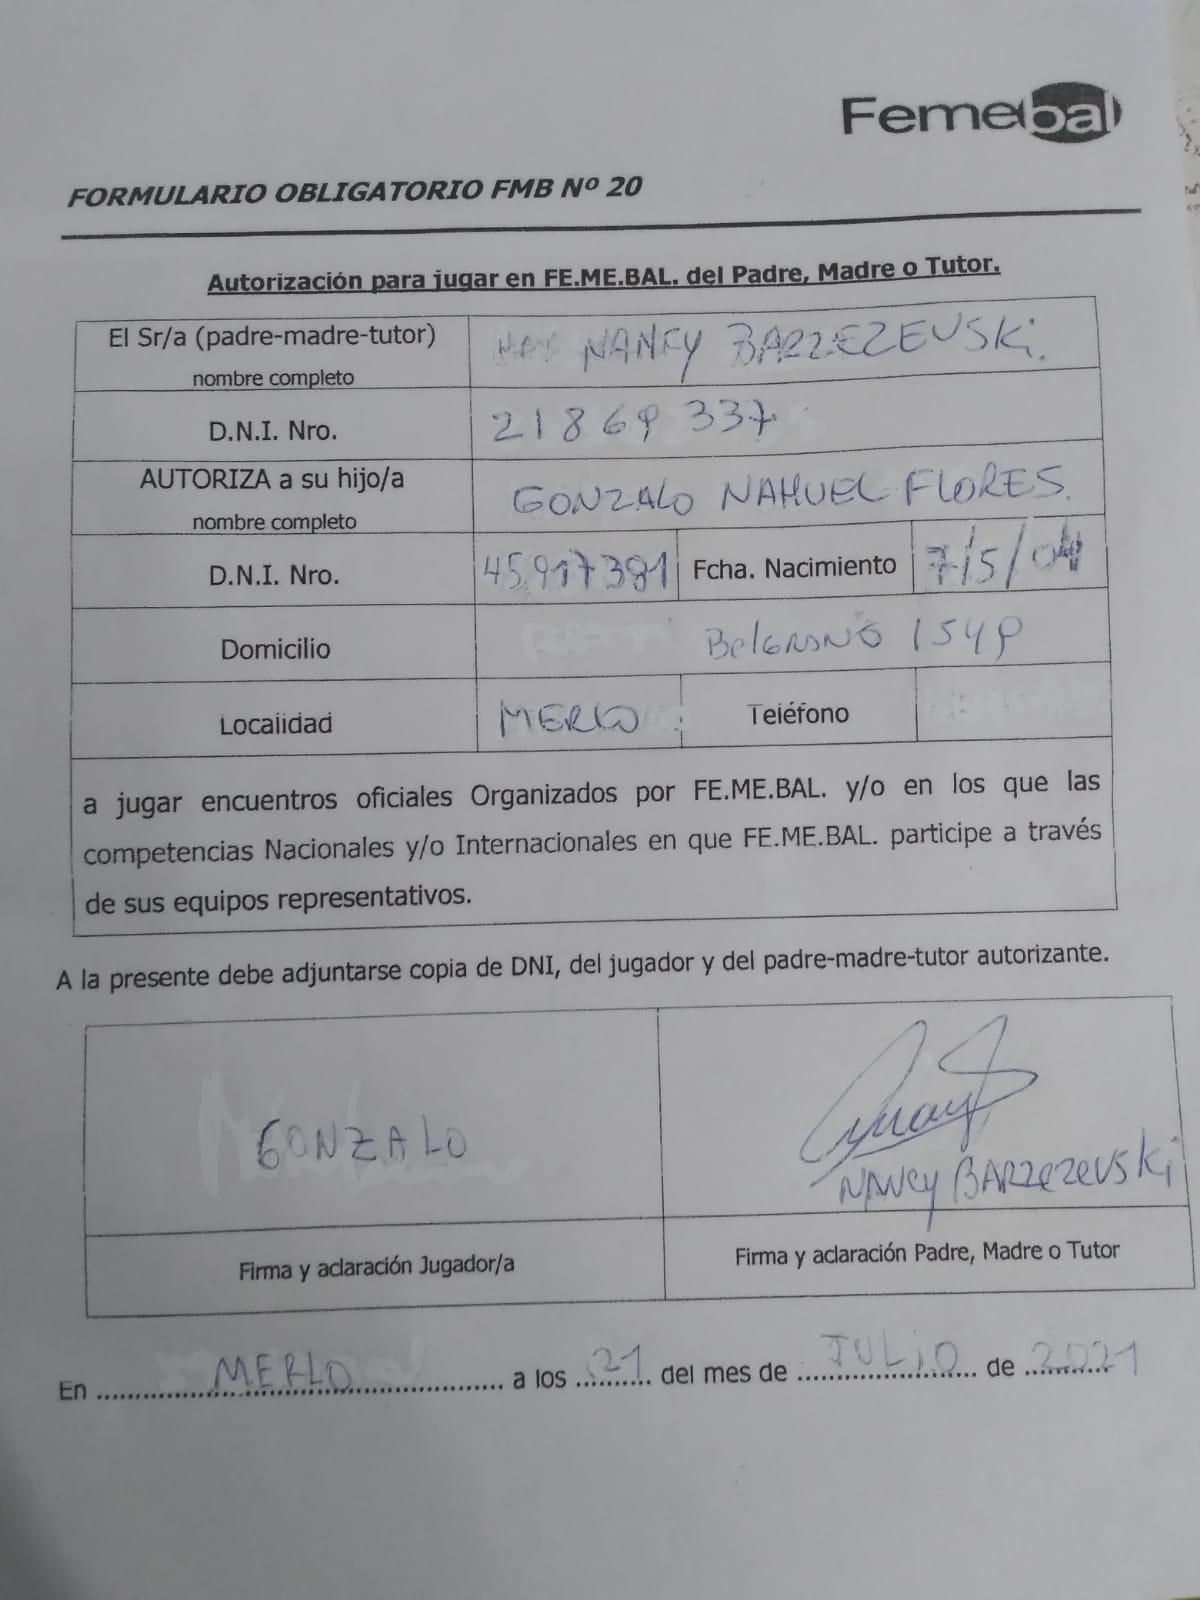 Femebal
FORMULARIO OBLIGATORIO FMB Nº 20
Autorización para jugar en FE.ME.BAL. del Padre, Madre o Tutor.
El Sr/a (padre-madre-tutor) NANCY BARZEZEVSKi.
nombre completo
D.N.I. Nro. 21869337
AUTORIZA a su hijo/a GONZALO NAHUEL FLORES.
nombre completo
D.N.I. Nro. 45.917381 Fcha. Nacimiento 7/5/04
Domicilio BelGRANO 1549
Localidad MERLO Teléfono
a jugar encuentros oficiales Organizados por FE.ME.BAL. y/o en los que las
competencias Nacionales y/o Internacionales en que FE.ME.BAL. participe a través
de sus equipos representativos.
A la presente debe adjuntarse copia de DNI, del jugador y del padre-madre-tutor autorizante.
GONZALO
NANCY BARZEZEVSKi
Firma y aclaración Jugador/a Firma y aclaración Padre, Madre o Tutor
En MERLO a los 21 del mes de JULIO de 2021